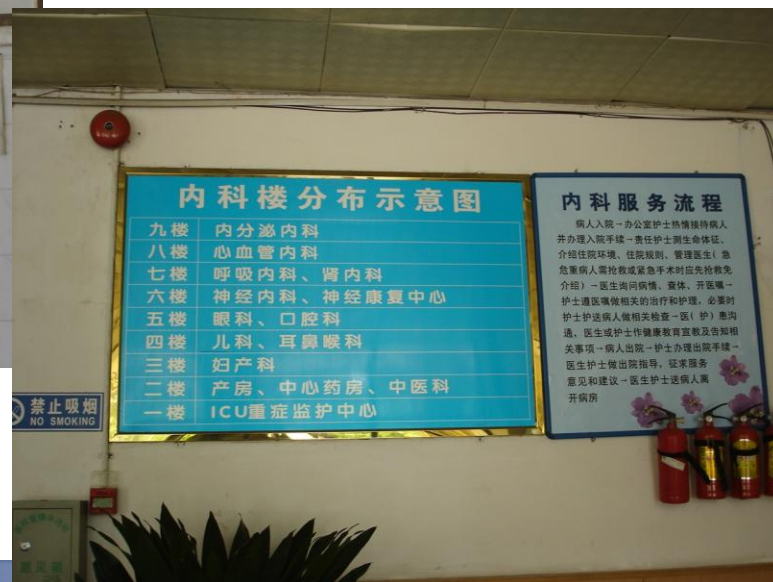 内科楼分布示意图
九楼 内分泌内科
八楼 心血管内科
七楼 呼吸内科、肾内科
六楼 神经内科、神经康复中心
五楼 眼科、口腔科
四楼 儿科、耳鼻喉科
三楼 妇产科
二楼 产房、中心药房、中医科
一楼 ICU重症监护中心
内科服务流程
病人入院→办公室护士热情接待病人
并办理入院手续→责任护士测生命体征、
介绍住院环境、住院规则、管理医生(急
危重病人需抢救或紧急手术时应先抢救免
介绍)→医生询问病情、查体、开医嘱→
护士遵医嘱做相关的治疗和护理，必要时
护士护送病人做相关检查→医(护)患沟
通、医生或护士作健康教育宣教及告知相
关事项→病人出院→护士办理出院手续→
医生护士做出院指导、征求服务
意见和建议→医生护士送病人离
开病房
禁止吸烟
NO SMOKING
意见箱